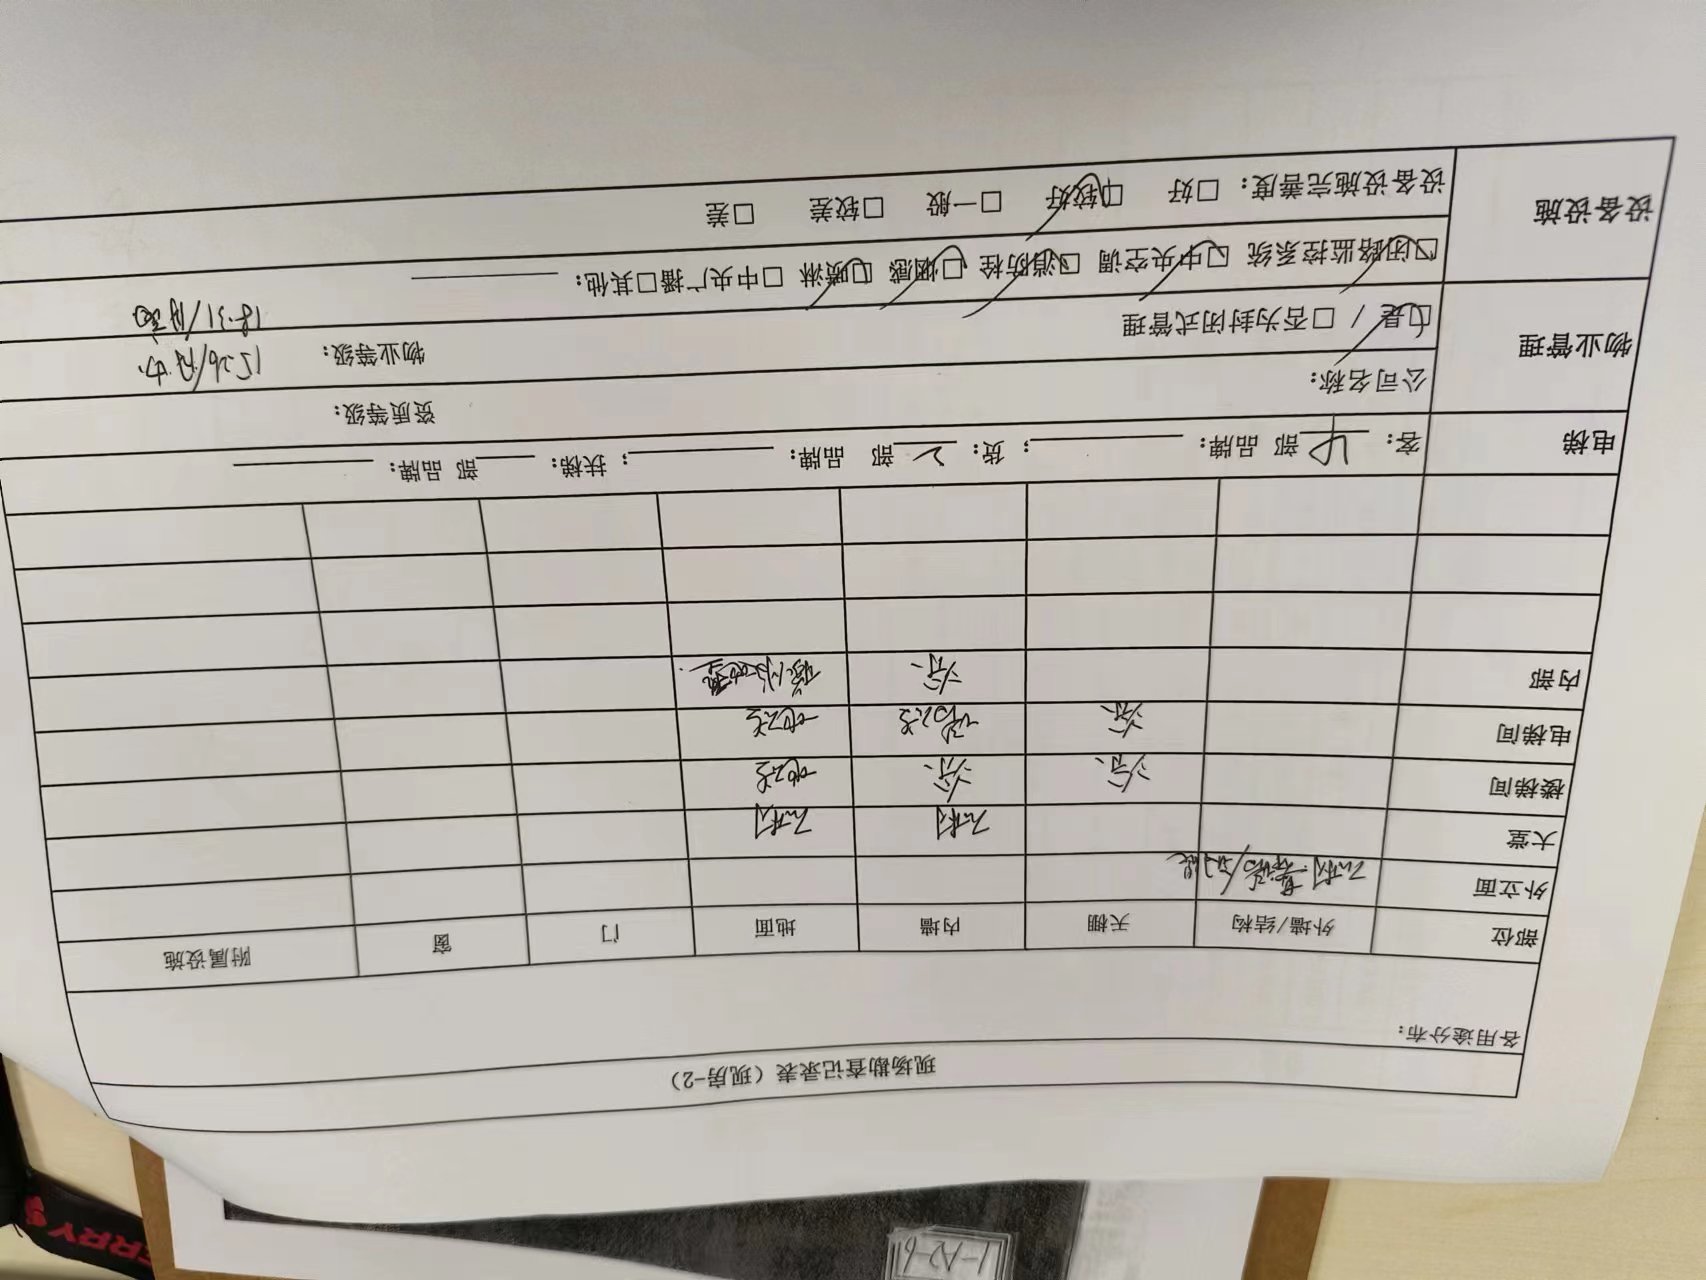 现场勘查记录表（现房-2）
各用途分布：
部位 外墙/结构 天棚 内墙 地面 门 窗 附属设施
外立面 石材.幕墙/
大堂 石材 石材
楼梯间 涂. 涂. 地砖
电梯间 涂. 墙砖 地砖
内部 涂.
电梯 客：4部 品牌： ；货：2部 品牌： ；扶梯： 部 品牌：
物业管理 公司名称： 资质等级：
☑是 / □否为封闭式管理 物业等级： 15.26/
18.31/
设备设施 ☑闭路监控系统 ☑中央空调 ☑消防栓 ☑烟感 ☑喷淋 □中央广播□其他：
设备设施完善度：□好 ☑较好 □一般 □较差 □差
1-A2-61
ERRY